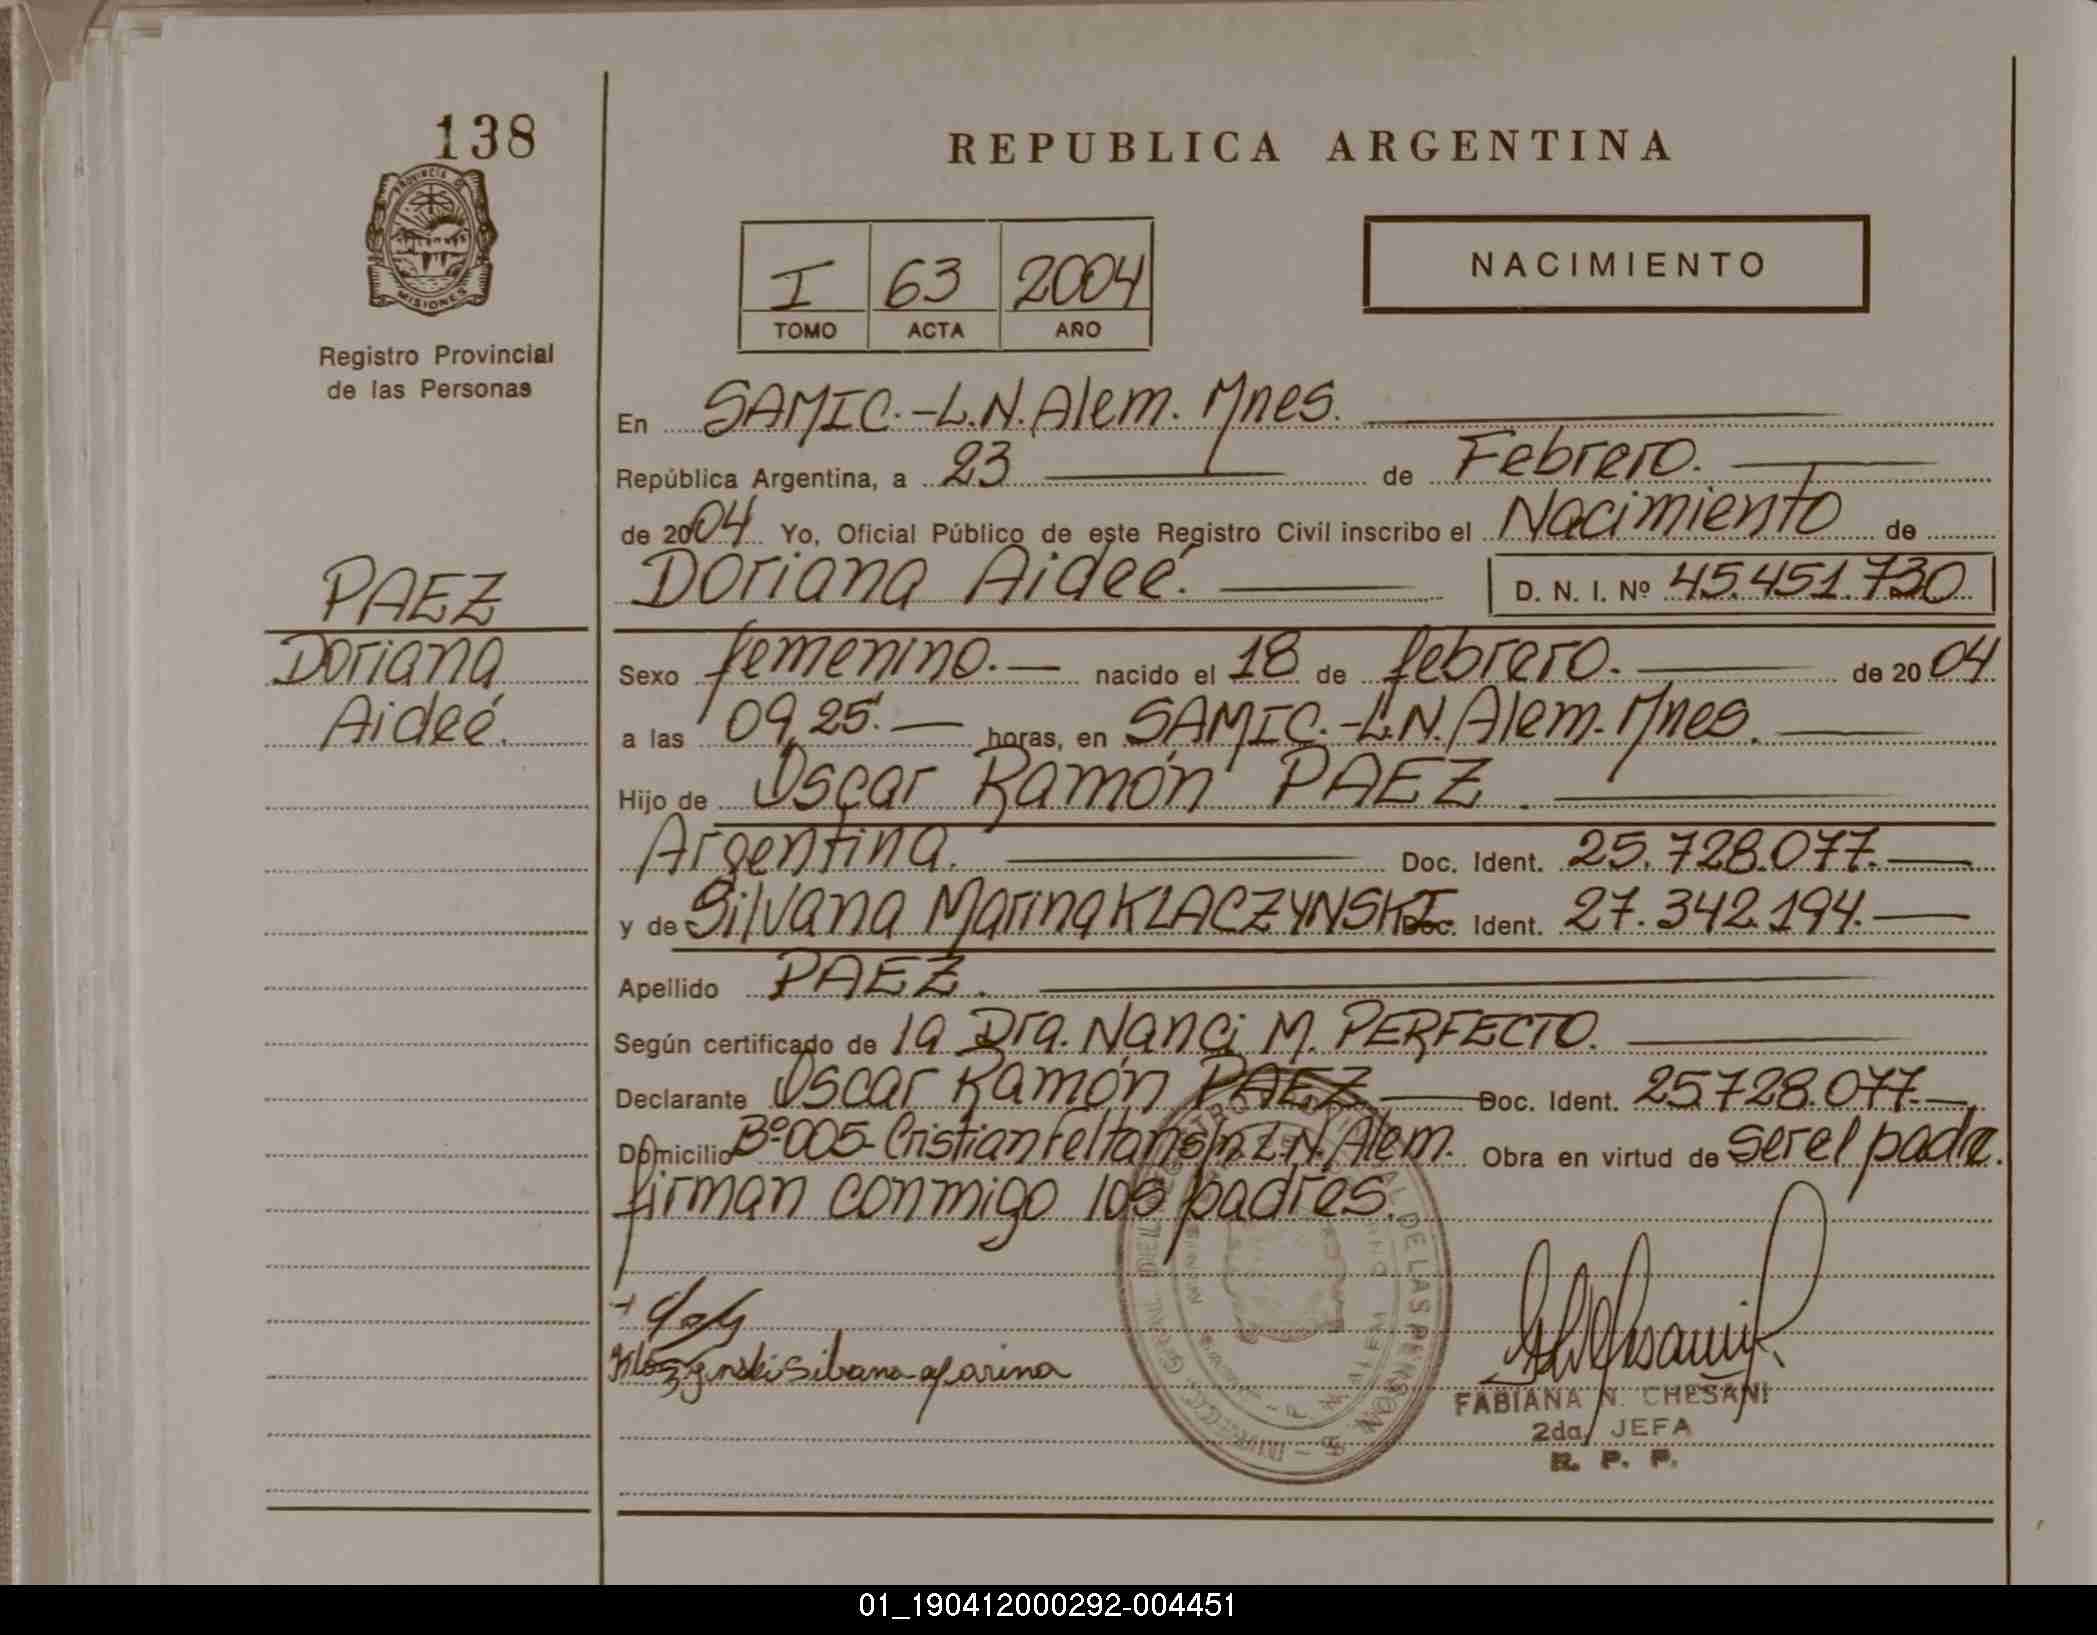 138
REPUBLICA ARGENTINA
PROVINCIA DE
MISIONES
Registro Provincial
de las Personas
I 63 2004
TOMO ACTA AÑO
NACIMIENTO
En SAMIC.-L.N.Alem. Mnes.
República Argentina, a 23 de Febrero.
de 2004 Yo, Oficial Público de este Registro Civil inscribo el Nacimiento de
PAEZ
Doriana Aideé. D. N. I. Nº 45.451.730
Doriana
Aideé.
Sexo femenino.- nacido el 18 de febrero. de 2004
a las 09,25.- horas, en SAMIC.-L.N.Alem.Mnes.
Hijo de Oscar Ramón PAEZ.
Argentina. Doc. Ident. 25.728.077.
y de Silvana Marina KLACZYNSKI Doc. Ident. 27.342.194.
Apellido PAEZ.
Según certificado de la Dra. Nanci M. PERFECTO.
Declarante Oscar Ramón PAEZ Doc. Ident. 25728.077.
Domicilio Bº005- Cristian Feltan s/n L.N. Alem. Obra en virtud de ser el padre.
firman conmigo los padres.
FABIANA N. CHESANI
2da. JEFA
R. P. P.
01_190412000292-004451